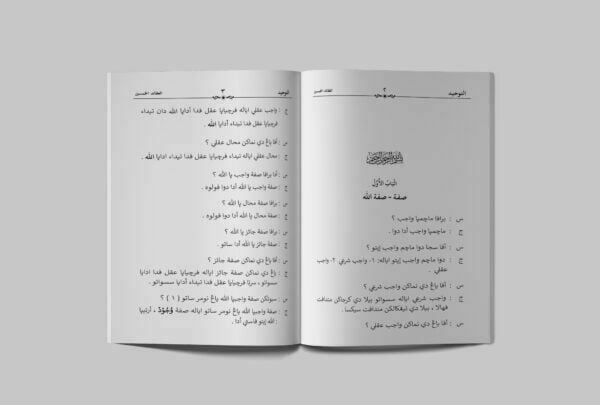 التوحيد
٢
بسم الله الرحمن الرحيم
الْبَابُ الْأَوَّل
صفة - صفة الله
س : برافا ماچمڽا واجب ؟
ج : ماچمڽا واجب أدا دوا .
س : أفا سجا دوا ماچم واجب إيتو ؟
ج : دوا ماچم واجب إيتو اياله: ١- واجب شرعي ٢- واجب
عقلي .
س : أفا ياڠ دي نماكن واجب شرعي ؟
ج : واجب شرعي اياله سسواتو بيلا دي كرجاكن مندافت
فهالا ، بيلا دي تيڠكالكن مندافت سيكسا .
س : أفا ياڠ دي نماكن واجب عقلي ؟
التوحيد
٣
ج : واجب عقلي اياله فرچيايا عقل فدا أدايا الله دان تيداء
فرچيايا عقل فدا تيداء أدايا الله .
س : أفا ياڠ دي نماكن محال عقلي ؟
ج : محال عقلي اياله تيداء فرچيايا عقل فدا تيداء ادايا الله .
س : أفا برافا صفة واجب يا الله ؟
ج : صفة واجب يا الله أدا دوا فولوه .
س : برافا صفة محال يا الله ؟
ج : صفة محال يا الله أدا دوا فولوه .
س : برافا صفة جائز يا الله ؟
ج : صفة جائز يا الله أدا ساتو .
س : أفا ياڠ دي نماكن صفة جائز ؟
ج : ياڠ دي نماكن صفة جائز اياله فرچيايا عقل فدا ادايا
سسواتو ، سرتا فرچيايا عقل فدا تيداء أدايا سسواتو .
س : سبوتكن صفة واجبيا الله ياڠ نومر ساتو ( ١ ) ؟
ج : صفة واجبيا الله ياڠ نومر ساتو اياله صفة وُجُوْدْ ، أرتييا
: الله إيتو فاستي أدا .